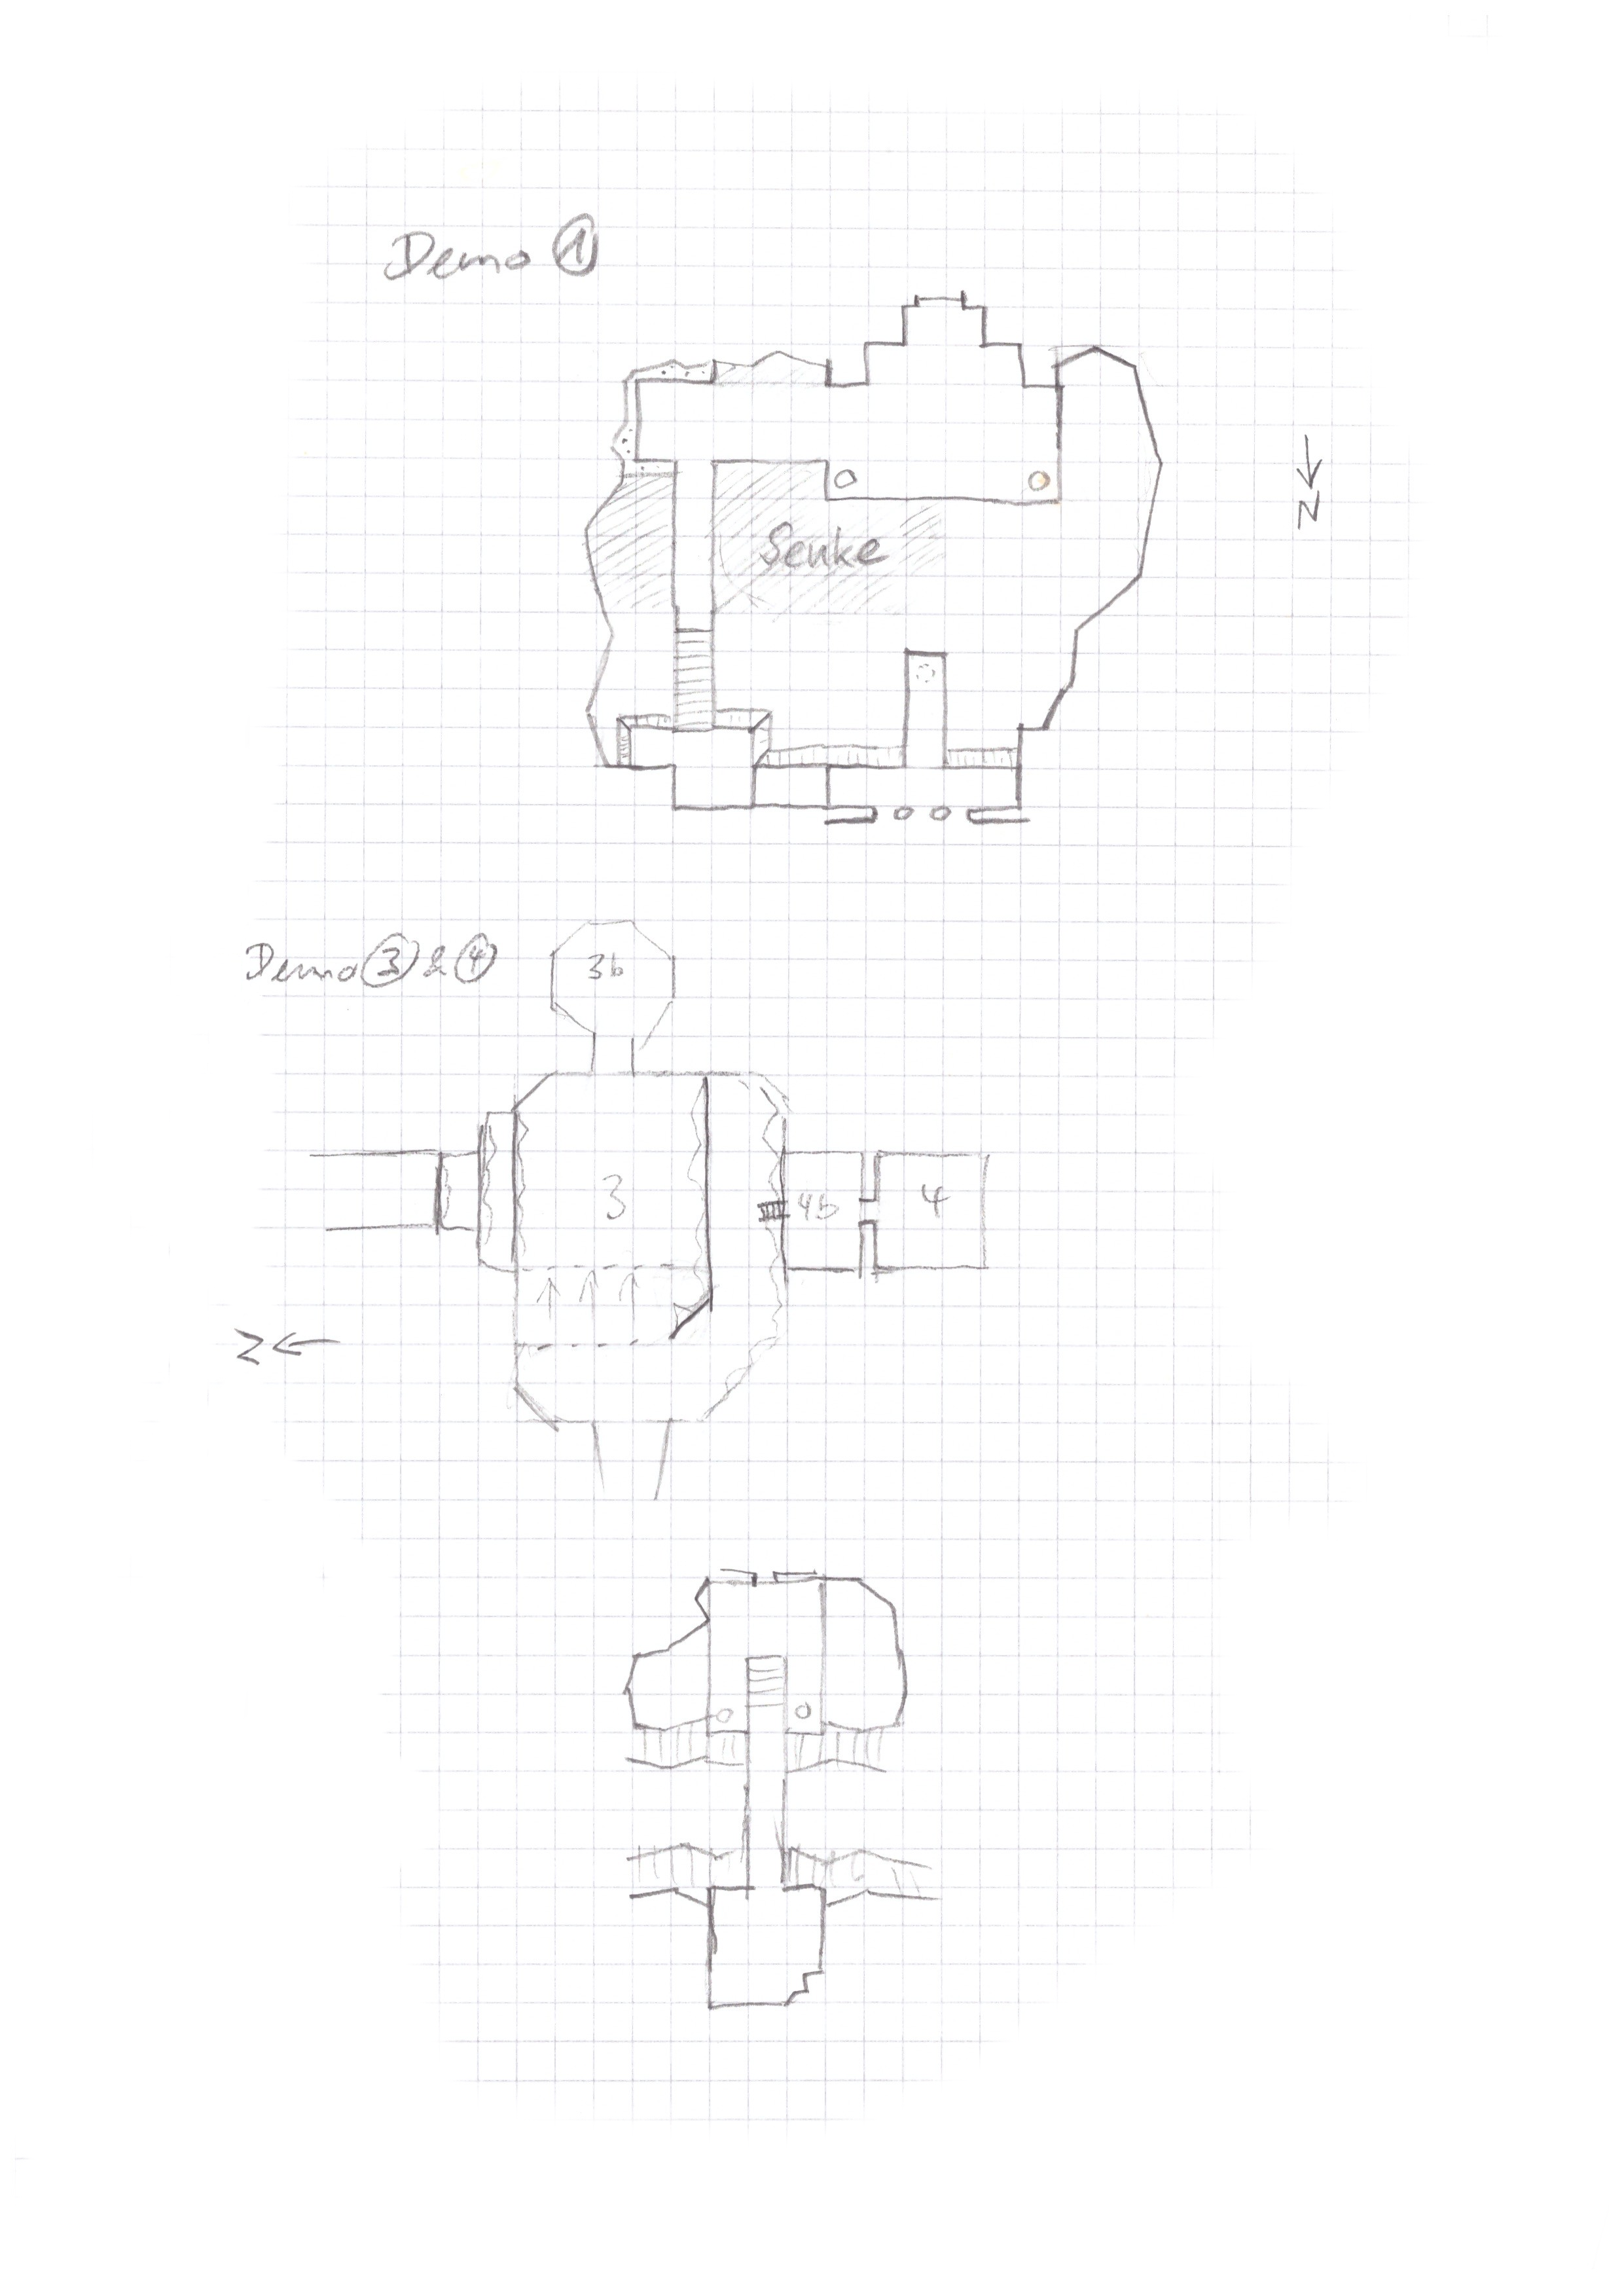 Demo 1
N
Senke
Demo 3 & 4
3b
3
4b
4
N